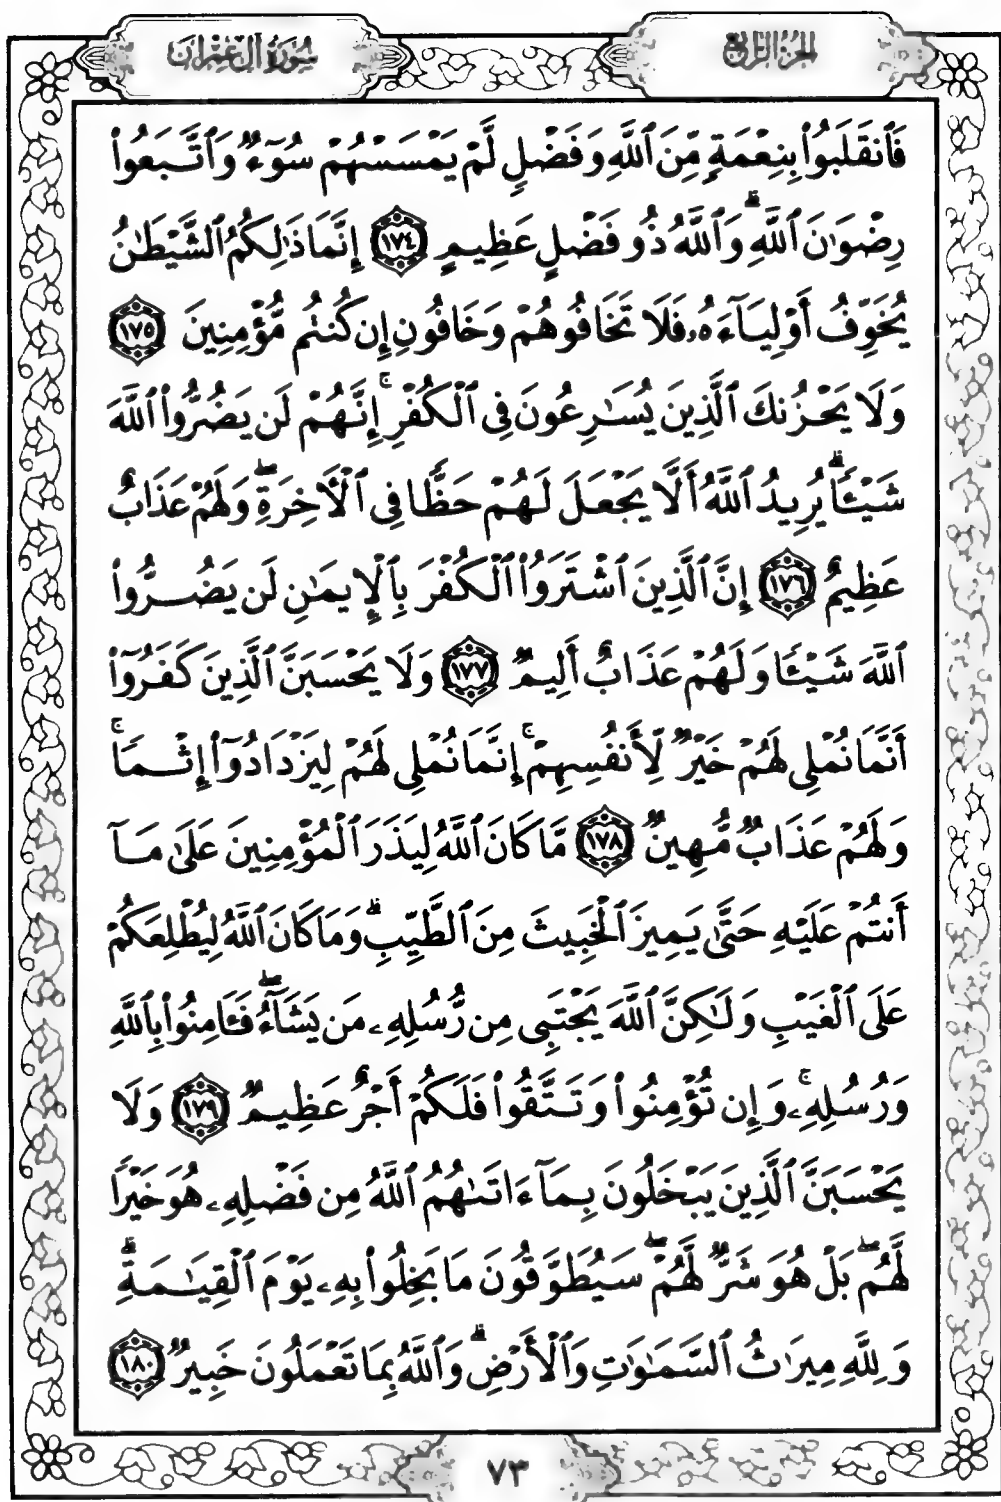 الجزء الرابع
سورة آل عمران
فَٱنقَلَبُوا۟ بِنِعْمَةٍ مِّنَ ٱللَّهِ وَفَضْلٍ لَّمْ يَمْسَسْهُمْ سُوٓءٌ وَٱتَّبَعُوا۟
رِضْوَٰنَ ٱللَّهِ ۗ وَٱللَّهُ ذُو فَضْلٍ عَظِيمٍ ١٧٤ إِنَّمَا ذَٰلِكُمُ ٱلشَّيْطَـٰنُ
يُخَوِّفُ أَوْلِيَآءَهُۥ فَلَا تَخَافُوهُمْ وَخَافُونِ إِن كُنتُم مُّؤْمِنِينَ ١٧٥
وَلَا يَحْزُنكَ ٱلَّذِينَ يُسَـٰرِعُونَ فِى ٱلْكُفْرِ ۚ إِنَّهُمْ لَن يَضُرُّوا۟ ٱللَّهَ
شَيْـًٔا ۗ يُرِيدُ ٱللَّهُ أَلَّا يَجْعَلَ لَهُمْ حَظًّا فِى ٱلْـَٔاخِرَةِ ۖ وَلَهُمْ عَذَابٌ
عَظِيمٌ ١٧٦ إِنَّ ٱلَّذِينَ ٱشْتَرَوُا۟ ٱلْكُفْرَ بِٱلْإِيمَـٰنِ لَن يَضُرُّوا۟
ٱللَّهَ شَيْـًٔا وَلَهُمْ عَذَابٌ أَلِيمٌ ١٧٧ وَلَا يَحْسَبَنَّ ٱلَّذِينَ كَفَرُوٓا۟
أَنَّمَا نُمْلِى لَهُمْ خَيْرٌ لِّأَنفُسِهِمْ ۚ إِنَّمَا نُمْلِى لَهُمْ لِيَزْدَادُوٓا۟ إِثْمًا ۚ
وَلَهُمْ عَذَابٌ مُّهِينٌ ١٧٨ مَّا كَانَ ٱللَّهُ لِيَذَرَ ٱلْمُؤْمِنِينَ عَلَىٰ مَآ
أَنتُمْ عَلَيْهِ حَتَّىٰ يَمِيزَ ٱلْخَبِيثَ مِنَ ٱلطَّيِّبِ ۗ وَمَا كَانَ ٱللَّهُ لِيُطْلِعَكُمْ
عَلَى ٱلْغَيْبِ وَلَـٰكِنَّ ٱللَّهَ يَجْتَبِى مِن رُّسُلِهِۦ مَن يَشَآءُ ۖ فَـَٔامِنُوا۟ بِٱللَّهِ
وَرُسُلِهِۦ ۚ وَإِن تُؤْمِنُوا۟ وَتَتَّقُوا۟ فَلَكُمْ أَجْرٌ عَظِيمٌ ١٧٩ وَلَا
يَحْسَبَنَّ ٱلَّذِينَ يَبْخَلُونَ بِمَآ ءَاتَىٰهُمُ ٱللَّهُ مِن فَضْلِهِۦ هُوَ خَيْرًا
لَّهُم ۖ بَلْ هُوَ شَرٌّ لَّهُمْ ۖ سَيُطَوَّقُونَ مَا بَخِلُوا۟ بِهِۦ يَوْمَ ٱلْقِيَـٰمَةِ ۗ
وَلِلَّهِ مِيرَٰثُ ٱلسَّمَـٰوَٰتِ وَٱلْأَرْضِ ۗ وَٱللَّهُ بِمَا تَعْمَلُونَ خَبِيرٌ ١٨٠
٧٣